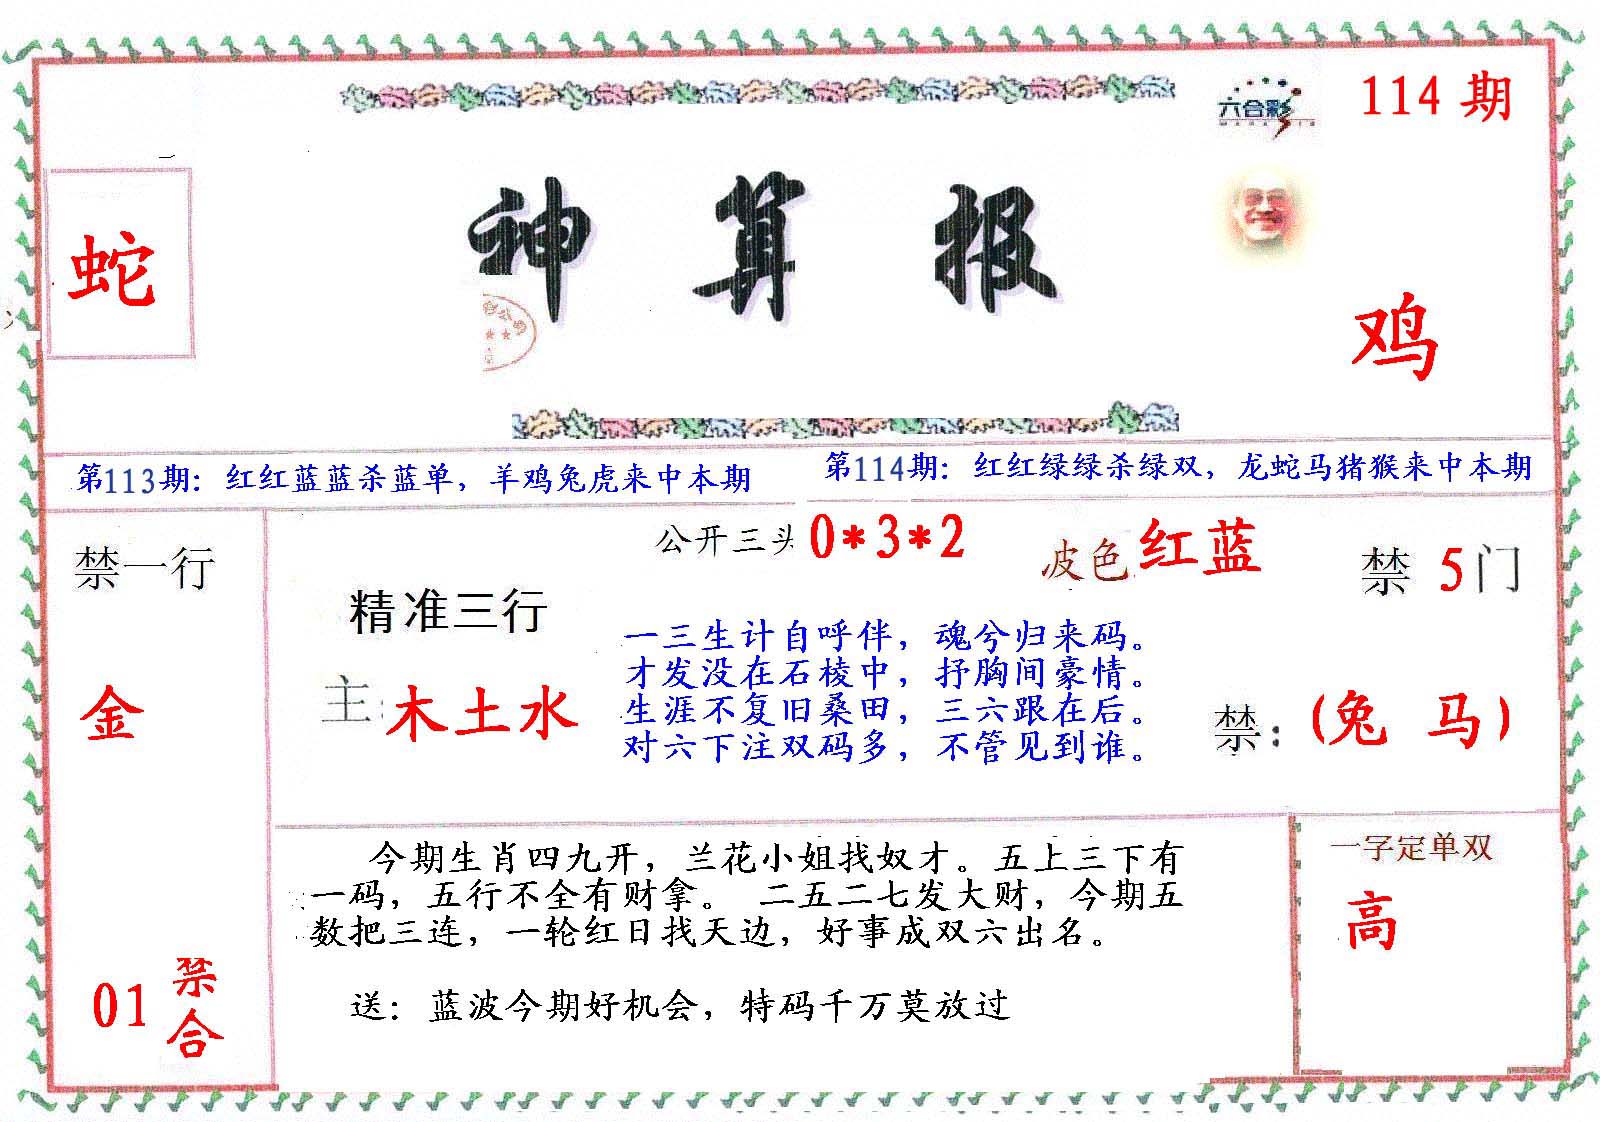 六合彩
114 期
蛇
神算报
鸡
第113期：红红蓝蓝杀蓝单，羊鸡兔虎来中本期
第114期：红红绿绿杀绿双，龙蛇马猪猴来中本期
禁一行
金
01 禁合
公开三头 0*3*2
波色 红蓝
禁 5 门
精准三行
主: 木土水
一三生计自呼伴，魂兮归来码。
才发没在石棱中，抒胸间豪情。
生涯不复旧桑田，三六跟在后。
对六下注双码多，不管见到谁。
禁: (兔 马)
今期生肖四九开，兰花小姐找奴才。五上三下有
一码，五行不全有财拿。 二五二七发大财，今期五
数把三连，一轮红日找天边，好事成双六出名。
送：蓝波今期好机会，特码千万莫放过
一字定单双
高